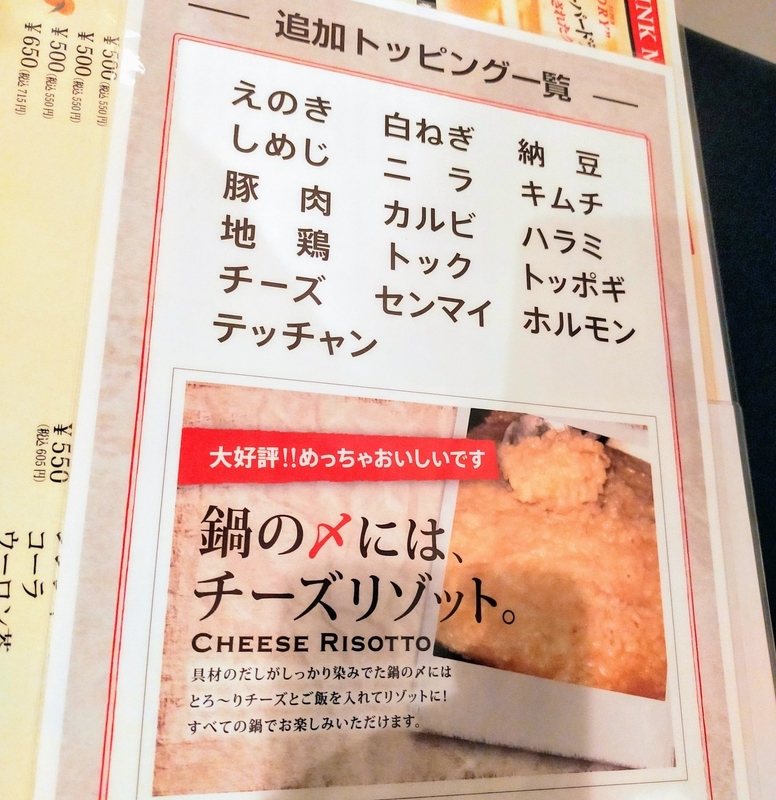 追加トッピング一覧
えのき
しめじ
豚 肉
地 鶏
チーズ
テッチャン
白ねぎ
ニ ラ
カルビ
トック
センマイ
納 豆
キムチ
ハラミ
トッポギ
ホルモン
大好評!!めっちゃおいしいです
鍋の〆には、
チーズリゾット。
CHEESE RISOTTO
具材のだしがしっかり染みでた鍋の〆には
とろ～りチーズとご飯を入れてリゾットに!
すべての鍋でお楽しみいただけます。
¥500(税込550円)
¥500(税込550円)
¥500(税込550円)
¥650(税込715円)
¥550(税込605円)
コーラ